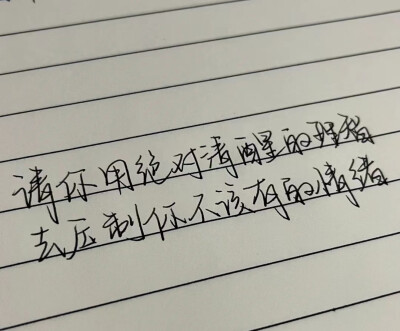 请你用绝对清醒的理智
去压制你不该有的情绪